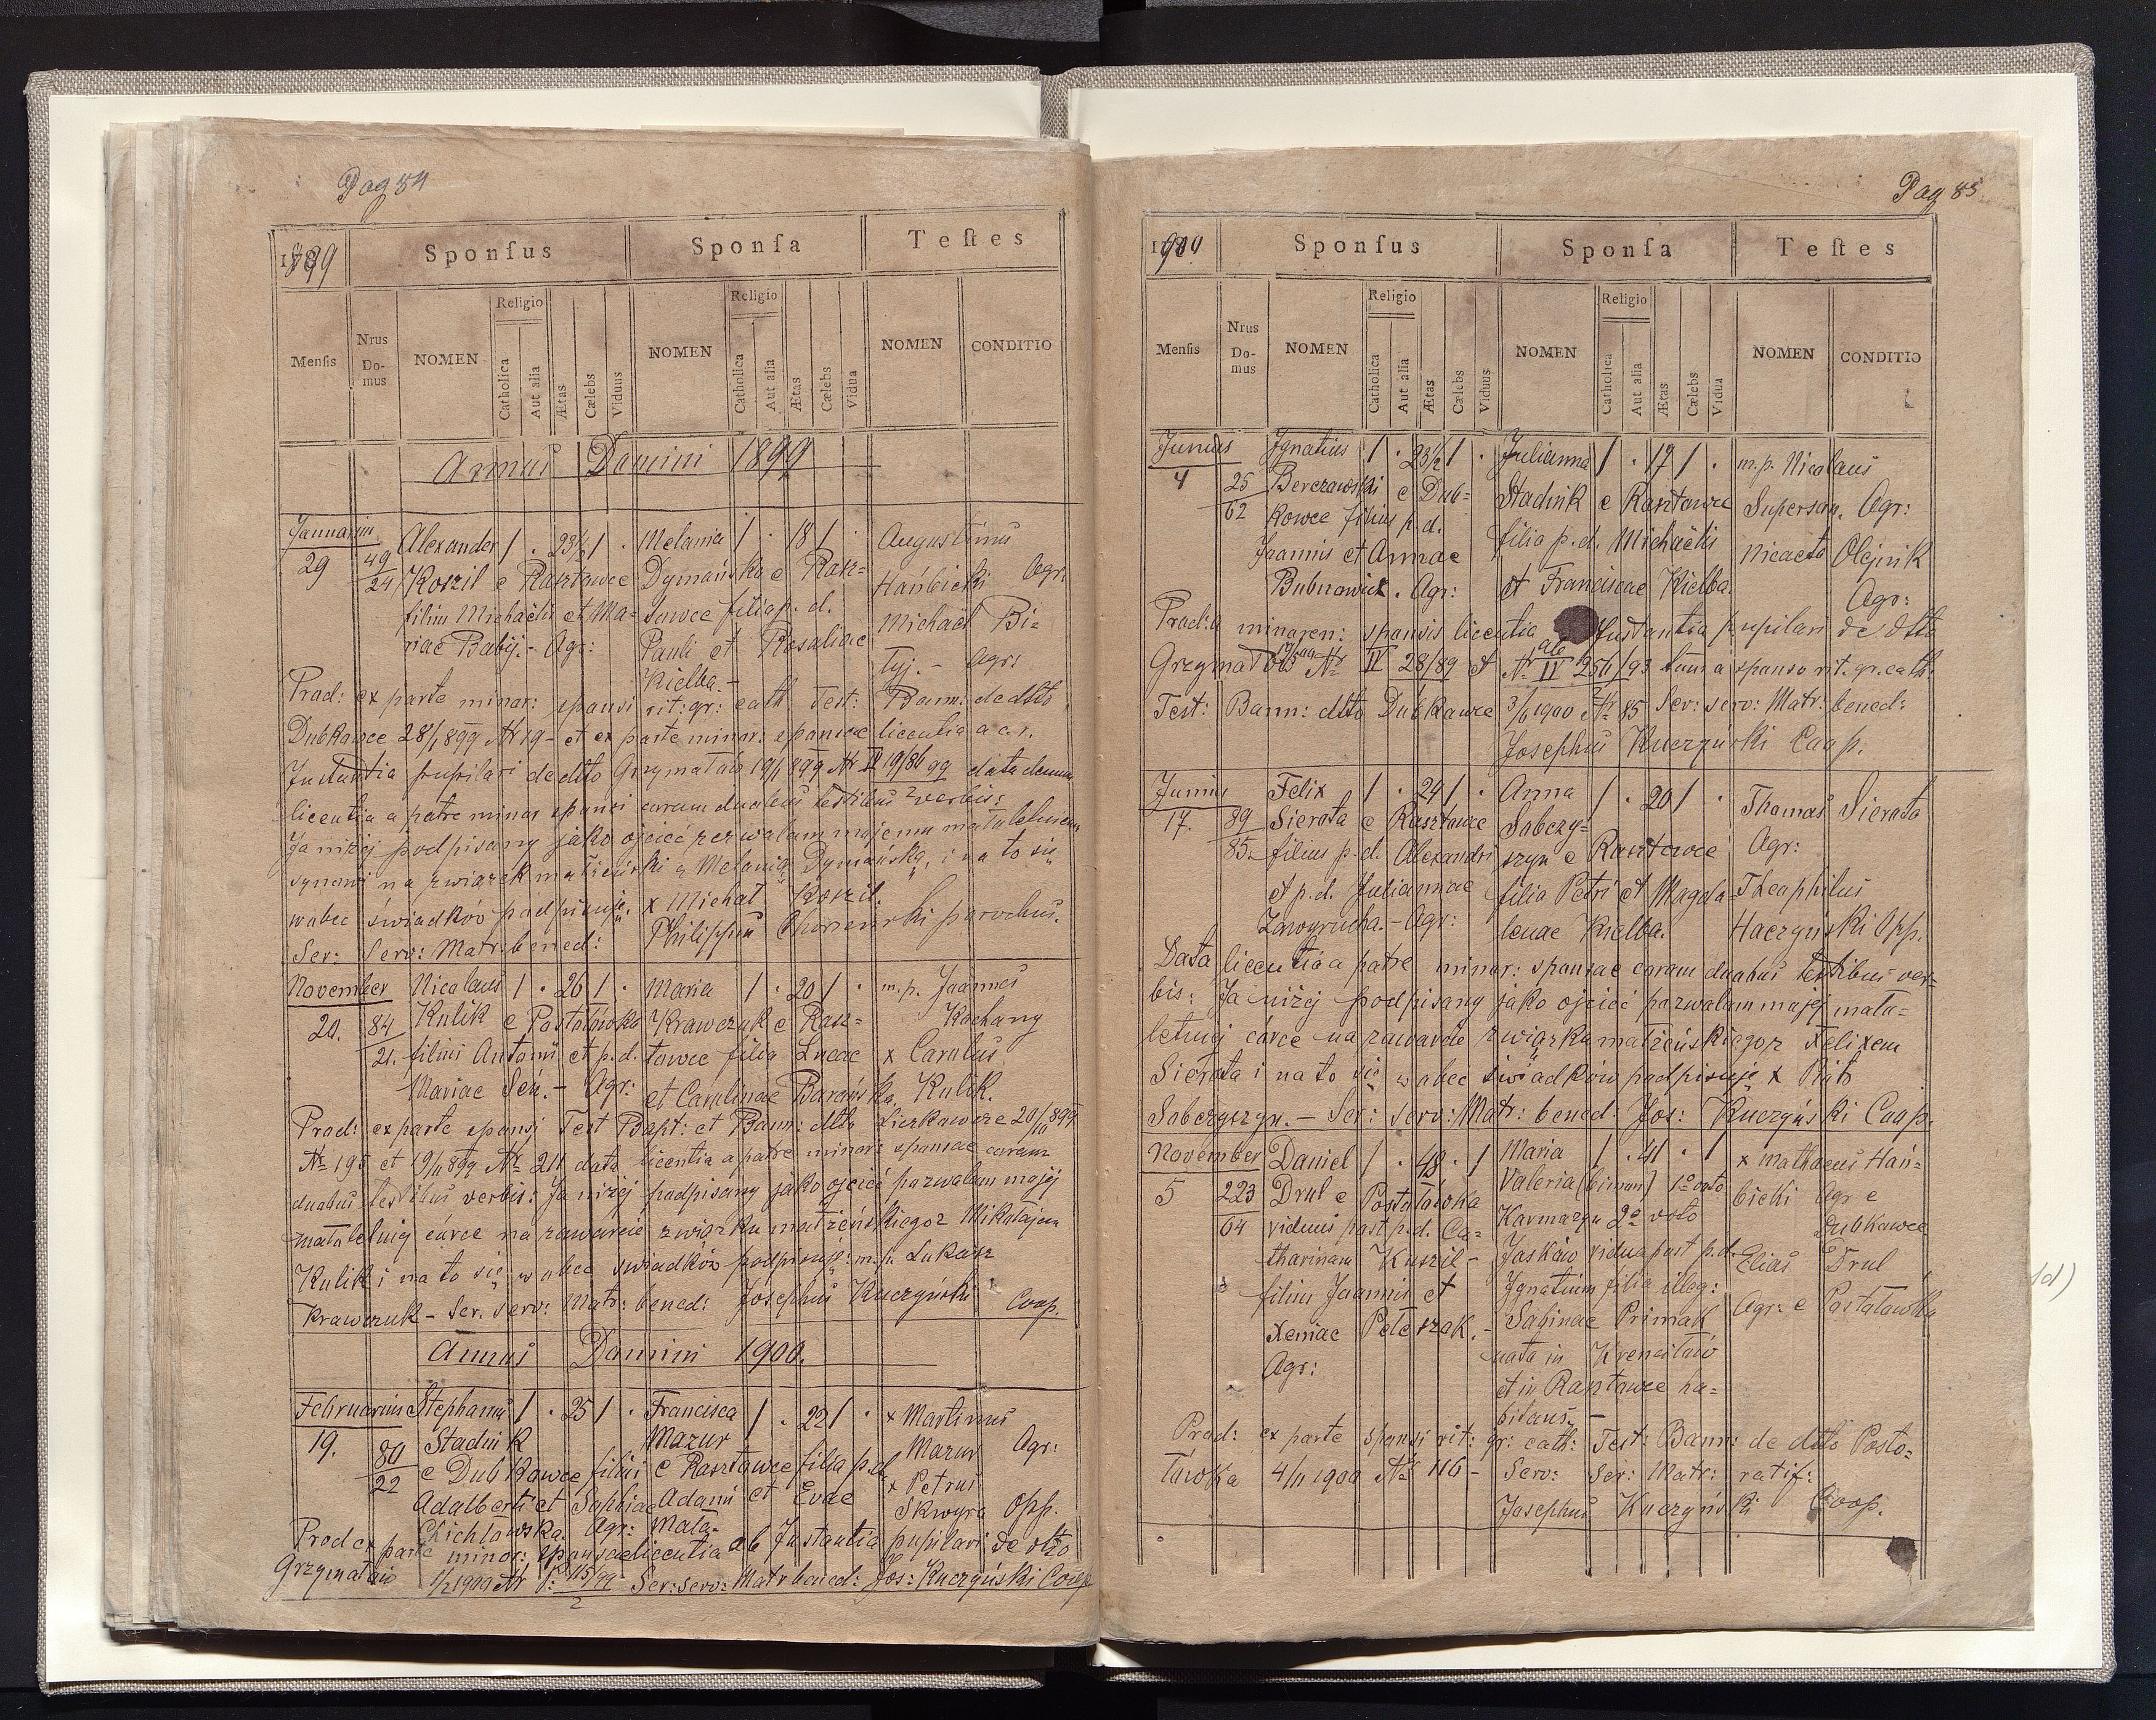 Pag 84
1899 Sponſus Sponſa Teſtes
Menſis Nrus Domus NOMEN Religio Catholica Aut alia Ætas Cælebs Viduus NOMEN Religio Catholica Aut alia Ætas Cælebs Vidua NOMEN CONDITIO
Annus Domini 1899
Januarius Alexander 1 . 23½ 1 . Melania 1 . 18 1 . Augustinus
29 49/24 Koszil e Rasztowce Dymańska e Rasz= Hańbicki Agr:
filius Michaëlis et Ma= towce filia p. d. Michaël Bi=
riae Babij. - Agr: Pauli et Rosaliae tyj. - Agr:
Kielba. -
Praed: ex parte minor: sponsi rit: gr: cath. Test: Bann: de dtto
Dubkowce 28/1 899 Nr 19 - et ex parte minor: sponsae licentia a c. r.
Instantia pupilari de dtto Grzymałów 19/1 899 Nr IV 19/86 99 data demum
licentia a patre minor sponsi coram duobus testibus verbis:
Ja niżej podpisany jako ojciec zezwalam mojemu małoletniemu
synowi na związek małżeński z Melanią Dymańską, i na to się
wobec świadków podpisuję. x Michał Koszil.
Ser: Serv: Matr: bened: Philippus parochus.
November Nicolaus 1 . 26 1 . Maria 1 . 20 1 . m. p. Joannes
20. 84/21. Kulik e Postołówka Krawczuk e Rasz= Kochany
filius Antonii et p. d. towce filia Lucae x Carolus
Mariae Seń. - Agr: et Carolinae Barańska. Kulik.
Praed: ex parte sponsi Test Bapt: et Bann: dtto 20/10 899
Nr 195 et 19/11 899 Nr 211 data licentia a patre minor: sponsae coram
duobus testibus verbis: Ja niżej podpisany jako ojciec pozwalam mojej
małoletniej córce na zawarcie związku małżeńskiego z Mikołajem
Kulik i na to się wobec świadków podpisuję: m. p. Łukasz
Krawczuk - Ser. serv: Matr: bened: Josephus Kuczyński Coop.
Annus Domini 1900.
Februarius Stephanus 1 . 25 1 . Francisca 1 . 22 1 . x Martinus
19. 80/22 Stadnik Mazur Mazur Agr:
e Dubkowce filius e Rasztowce filia p. d. x Petrus
Adalberti et Sophiae Adami et Evae Skwyra Opp.
Chichłowska. Agr: Mała.
Praed ex parte minor: sponsae licentia ab Instantia pupilari de dtto
Grzymałów 1/2 1900 Nr P: 115/99 Ser: serv: Matr bened: Jos: Kuczyński Coop
Pag 85
1900 Sponſus Sponſa Teſtes
Menſis Nrus Domus NOMEN Religio Catholica Aut alia Ætas Cælebs Viduus NOMEN Religio Catholica Aut alia Ætas Cælebs Vidua NOMEN CONDITIO
Junius Ignatius 1 . 23½ 1 . Julianna 1 . 17 1 . m. p. Nicolaus
4 25/62 Berezowski e Dub= Stadnik e Rasztowce Superson. Agr:
kowce filius p. d. filia p. d. Michaëlis Olejnik
Joannis et Annae et Franciscae Kielba. Agr:
Bubnowicz. Agr:
Praed: a minoren: sponsis licentia ab Instantia pupilari de dtto
Grzymałów Nr IV 28/89 et Nr IV 256/93 tum a sponso rit. gr. cath.
Test: Bann: dtto Dubkowce 3/6 1900 Nr 85 Ser: serv: Matr: bened:
Josephus Kuczyński Coop.
Junius Felix 1 . 24 1 . Anna 1 . 20 1 . Thomas Sierota
17. 89/85. Sierota e Rasztowce Sobczy= Agr:
filius p. d. Alexandri szyn e Rasztowce
et p. d. Juliannae filia Petri et Magda= Theophilus
Zawyrucha. - Agr: lenae Kielba. Haczyński Opp.
Data licentia a patre minor: sponsae coram duobus testibus ver=
bis: Ja niżej podpisany jako ojciec pozwalam mojej mało=
letniej córce na zawarcie związku małżeńskiego z Felixem
Sierota i na to się wobec świadków podpisuję x Piotr
Sobczyszyn. - Ser: serv: Matr: bened: Jos: Kuczyński Coop.
November Daniel 1 . 48 . 1 Maria 1 . 41 . 1 x Mathaeus Hań=
5 223/64 Drul e Postołówka Valeria (binom) 1o voto bicki Agr e
viduus post p. d. Ca= Karmazyn 2o voto Dubkowce
tharinam Kuszil - Jaśków vidua post p. d. Elias Drul
filius Joannis et Ignatium filia illeg: Agr: e Postołówka
Xeniae Peteszak. - Sabinae Primak
Agr: nata in
et in Rasztowce ha=
bitans. -
Praed: ex parte sponsi rit: gr: cath: Test: Bann: de dtto Posto=
łówka 4/11 1900 Nr 116 - Serv: Ser: Matr: ratif:
Josephus Kuczyński Coop.